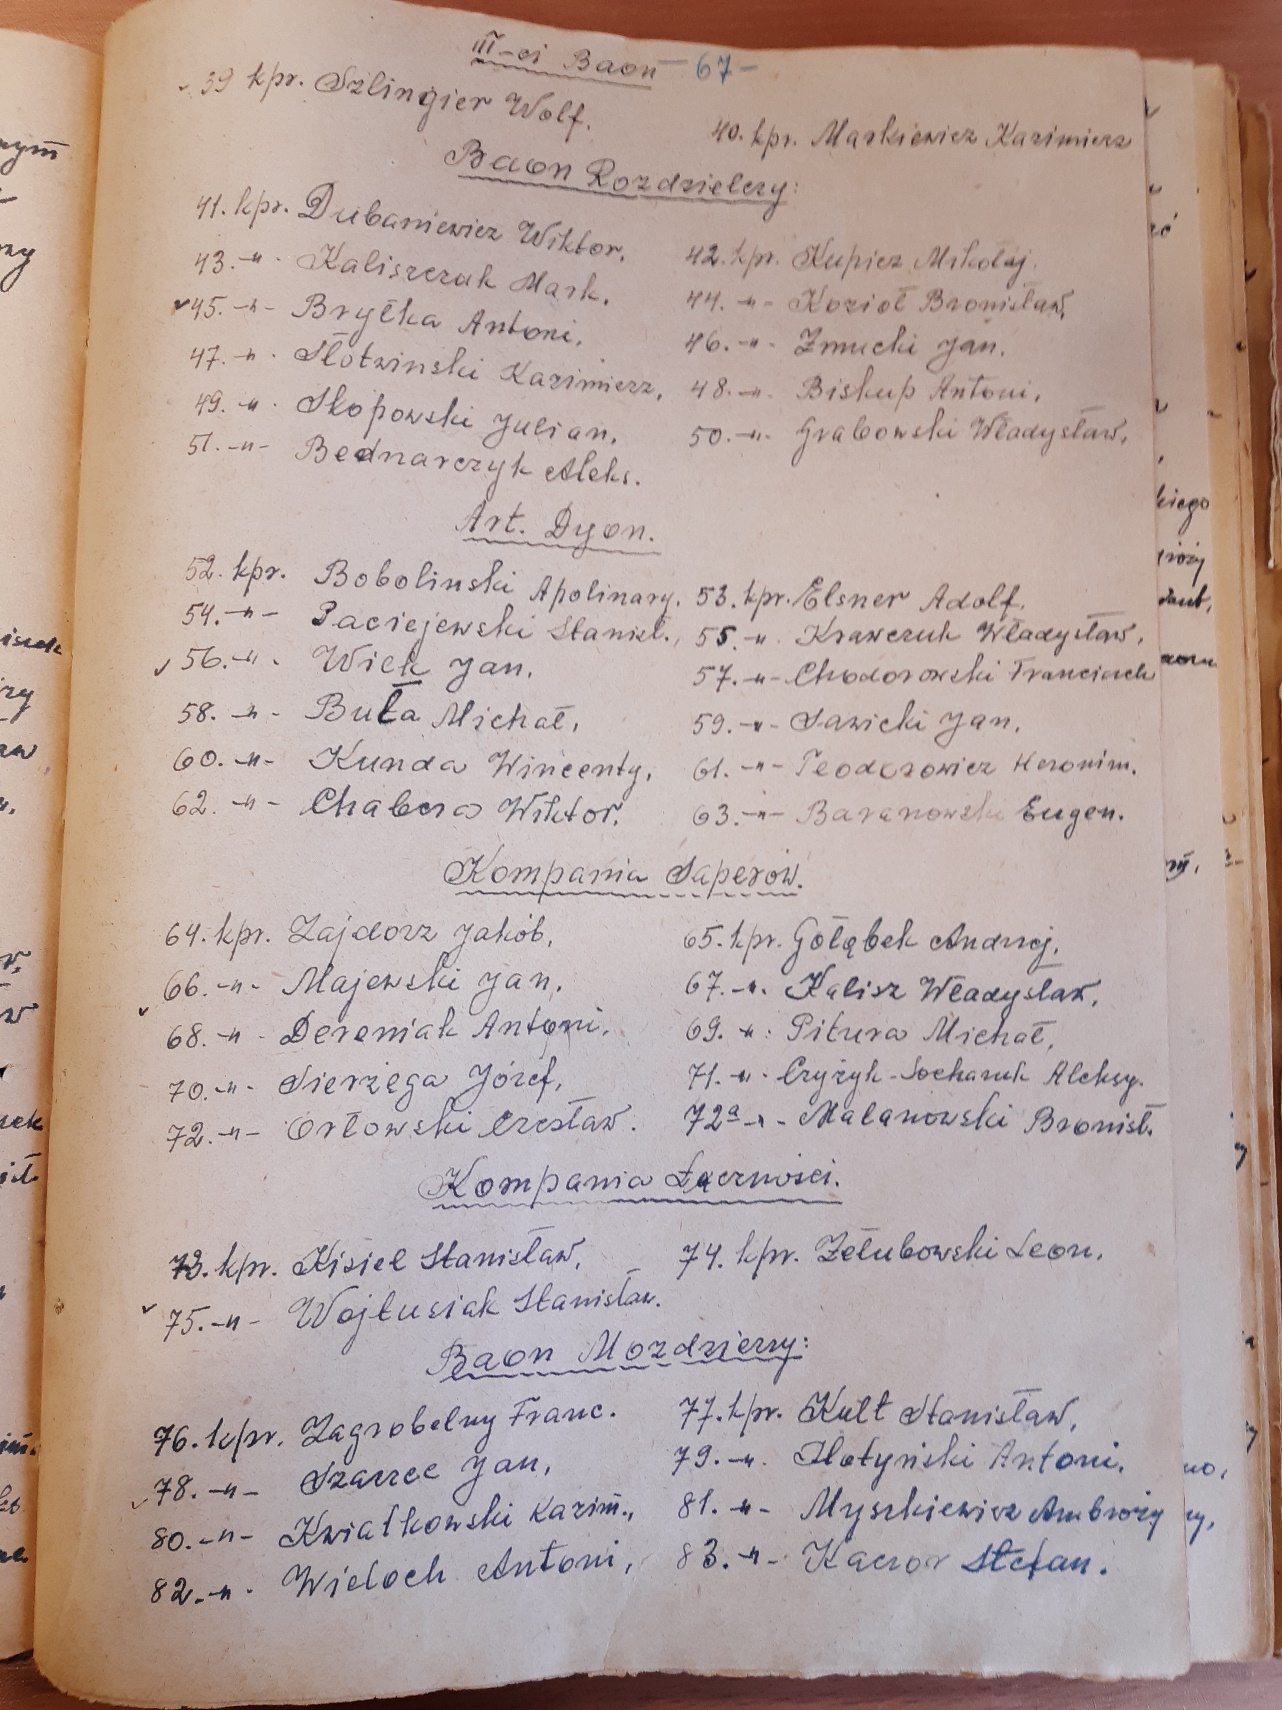 III-ci Baon -67-
39 kpr. Szlingier Wolf. 40. kpr. Markiewicz Kazimierz
Baon Rozdzielczy:
41. kpr. Dubaniewicz Wiktor, 42. kpr. Kupicz Mikołaj.
43. -"- Kaliszczuk Mark, 44. -"- Kozioł Bronisław,
45. -"- Bryłka Antoni, 46. -"- Zmucki Jan,
47. -"- Słotwinski Kazimierz, 48. -"- Biskup Antoni,
49. -"- Skopowski Julian, 50. -"- Grabowski Władysław,
51. -"- Bednarczyk Aleks.
Art. Dyon.
52. kpr. Bobolinski Apolinary, 53. kpr. Elsner Adolf.
54. -"- Paciejewski Stanisł., 55. -"- Krawczuk Władysław,
56. -"- Wiek Jan, 57. -"- Chodorowski Franciszek
58. -"- Buła Michał, 59. -"- Sawicki Jan,
60. -"- Kunda Wincenty, 61. -"- Teodorowicz Heronim.
62. -"- Chabera Wiktor, 63. -"- Baranowski Eugen.
Kompania Saperów.
64. kpr. Zajdorz Jakób, 65. kpr. Gołąbek Andrzej,
66. -"- Majewski Jan, 67. -"- Kalisz Władysław,
68. -"- Dereniak Antoni, 69. -"- Pitura Michał,
70. -"- Sierzęga Józef, 71. -"- Czyżyk-Socharuk Aleksy.
72. -"- Orłowski Czesław. 72a -"- Malanowski Bronisł.
Kompania Łączności.
73. kpr. Kisiel Stanisław, 74. kpr. Zełubowski Leon,
75. -"- Wojtusiak Stanisław.
Baon Mozdzierzy:
76. kpr. Zagrobelny Franc. 77. kpr. Kult Stanisław,
78. -"- Szarzec Jan, 79. -"- Antoni,
80. -"- Kwiatkowski Kazim., 81. -"- Myszkiewicz Ambroży
82. -"- Wieloch Antoni, 83. -"- Kaczor Stefan.